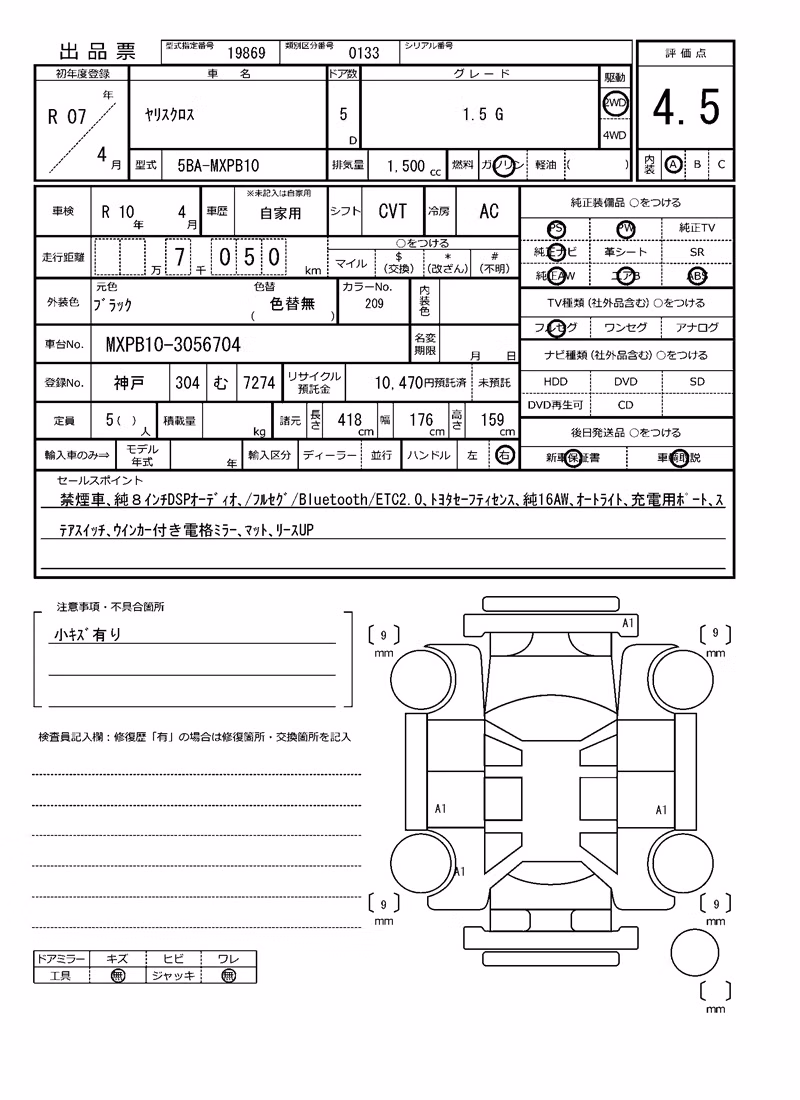 出品票 型式指定番号 19869 類別区分番号 0133 シリアル番号
評価点
初年度登録 車名 ドア数 グレード 駆動
R 07 年 4 月 ヤリスクロス 5 D 1.5 G 2WD 4WD
4.5
型式 5BA-MXPB10 排気量 1,500 cc 燃料 ガソリン 軽油 ( )
内装 A B C
車検 R 10 年 4 月 車歴 ※未記入は自家用 自家用 シフト CVT 冷房 AC
純正装備品 ○をつける
PS PW 純正TV
純正ナビ 革シート SR
純正AW エアB ABS
走行距離 万 7 千 0 5 0 km
○をつける
マイル $(交換) *(改ざん) #(不明)
TV種類(社外品含む)○をつける
フルセグ ワンセグ アナログ
外装色 元色 ブラック 色替 色替無 ( ) カラーNo. 209 内装色
車台No. MXPB10-3056704 名変期限 月 日
ナビ種類(社外品含む)○をつける
HDD DVD SD
DVD再生可 CD
登録No. 神戸 304 む 7274 リサイクル預託金 10,470円預託済 未預託
定員 5( ) 人 積載量 kg 諸元 長さ 418 cm 幅 176 cm 高さ 159 cm
後日発送品 ○をつける
新車保証書 車輌取説
輸入車のみ⇒ モデル年式 年 輸入区分 ディーラー 並行 ハンドル 左 右
セールスポイント
禁煙車、純８インチDSPオーディオ、/フルセグ/Bluetooth/ETC2.0、トヨタセーフティセンス、純16AW、オートライト、充電用ポート、ス
テアスイッチ、ウインカー付き電格ミラー、マット、リースUP
注意事項・不具合箇所
小キズ有り
検査員記入欄：修復歴「有」の場合は修復箇所・交換箇所を記入
ドアミラー キズ ヒビ ワレ
工具 無 ジャッキ 無
A1
9 mm
9 mm
A1
A1
A1
9 mm
9 mm
mm